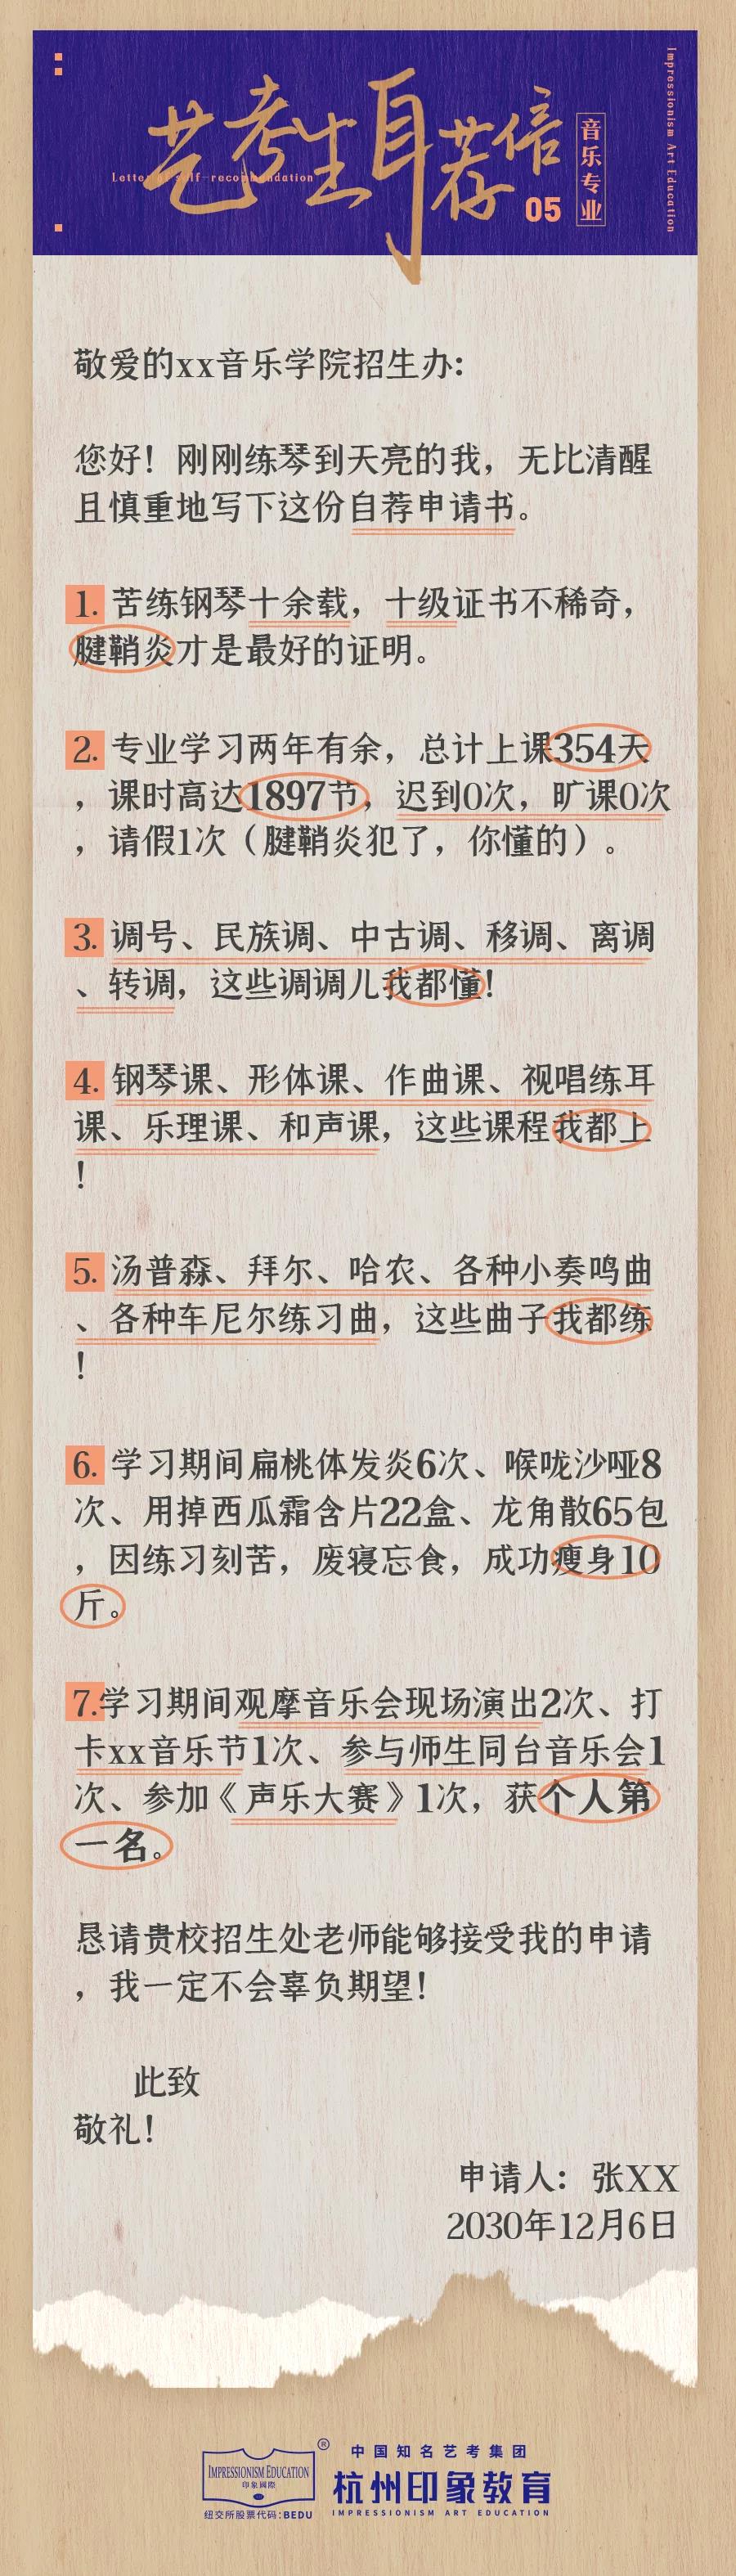 艺考生自荐信
Letter of self-recommendation
05
音乐专业
Impressionism Art Education
敬爱的xx音乐学院招生办:
您好！刚刚练琴到天亮的我，无比清醒
且慎重地写下这份自荐申请书。
1. 苦练钢琴十余载，十级证书不稀奇，
腱鞘炎才是最好的证明。
2. 专业学习两年有余，总计上课354天
，课时高达1897节，迟到0次，旷课0次
，请假1次（腱鞘炎犯了，你懂的）。
3. 调号、民族调、中古调、移调、离调
、转调，这些调调儿我都懂!
4. 钢琴课、形体课、作曲课、视唱练耳
课、乐理课、和声课，这些课程我都上
!
5. 汤普森、拜尔、哈农、各种小奏鸣曲
、各种车尼尔练习曲，这些曲子我都练
!
6. 学习期间扁桃体发炎6次、喉咙沙哑8
次、用掉西瓜霜含片22盒、龙角散65包
，因练习刻苦，废寝忘食，成功瘦身10
斤。
7.学习期间观摩音乐会现场演出2次、打
卡xx音乐节1次、参与师生同台音乐会1
次、参加《声乐大赛》1次，获个人第
一名。
恳请贵校招生处老师能够接受我的申请
，我一定不会辜负期望!
此致
敬礼!
申请人：张XX
2030年12月6日
IMPRESSIONISM EDUCATION
印象國際
®
纽交所股票代码:BEDU
中国知名艺考集团
杭州印象教育
IMPRESSIONISM ART EDUCATION